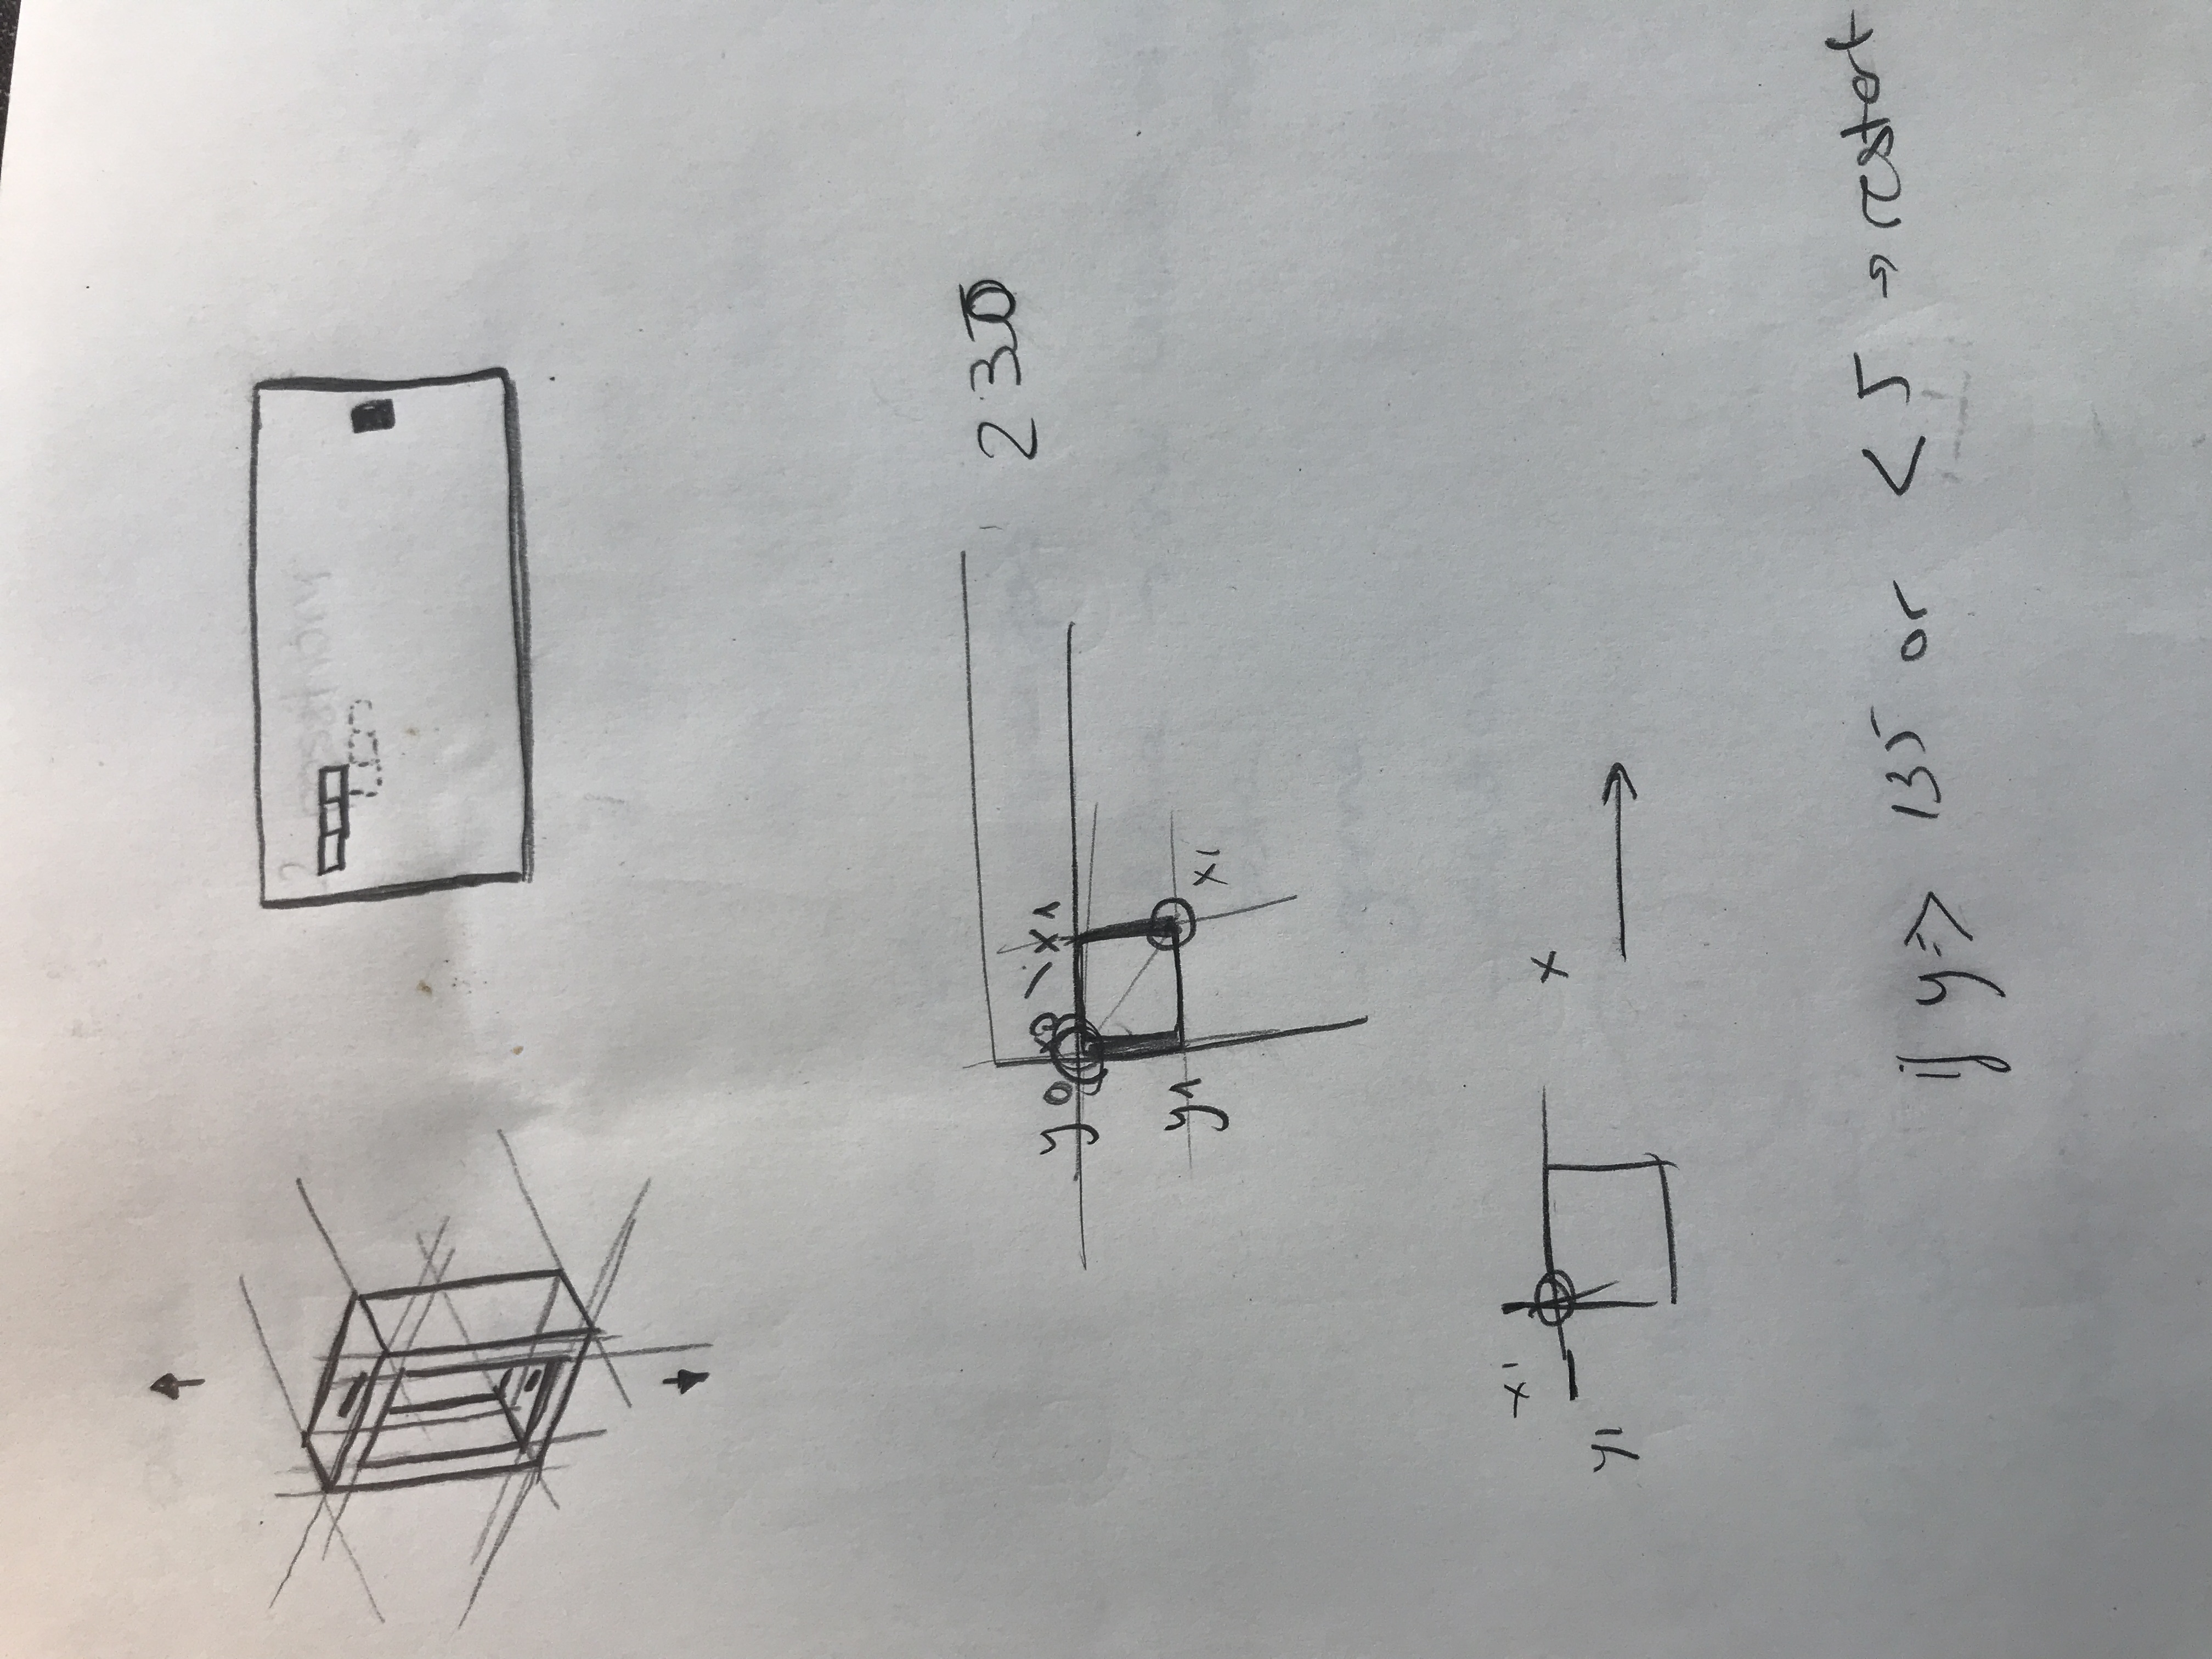 230
y0 x0 x1
y1
x1
x1
x
y1
if y => 135 or < 5 → restart